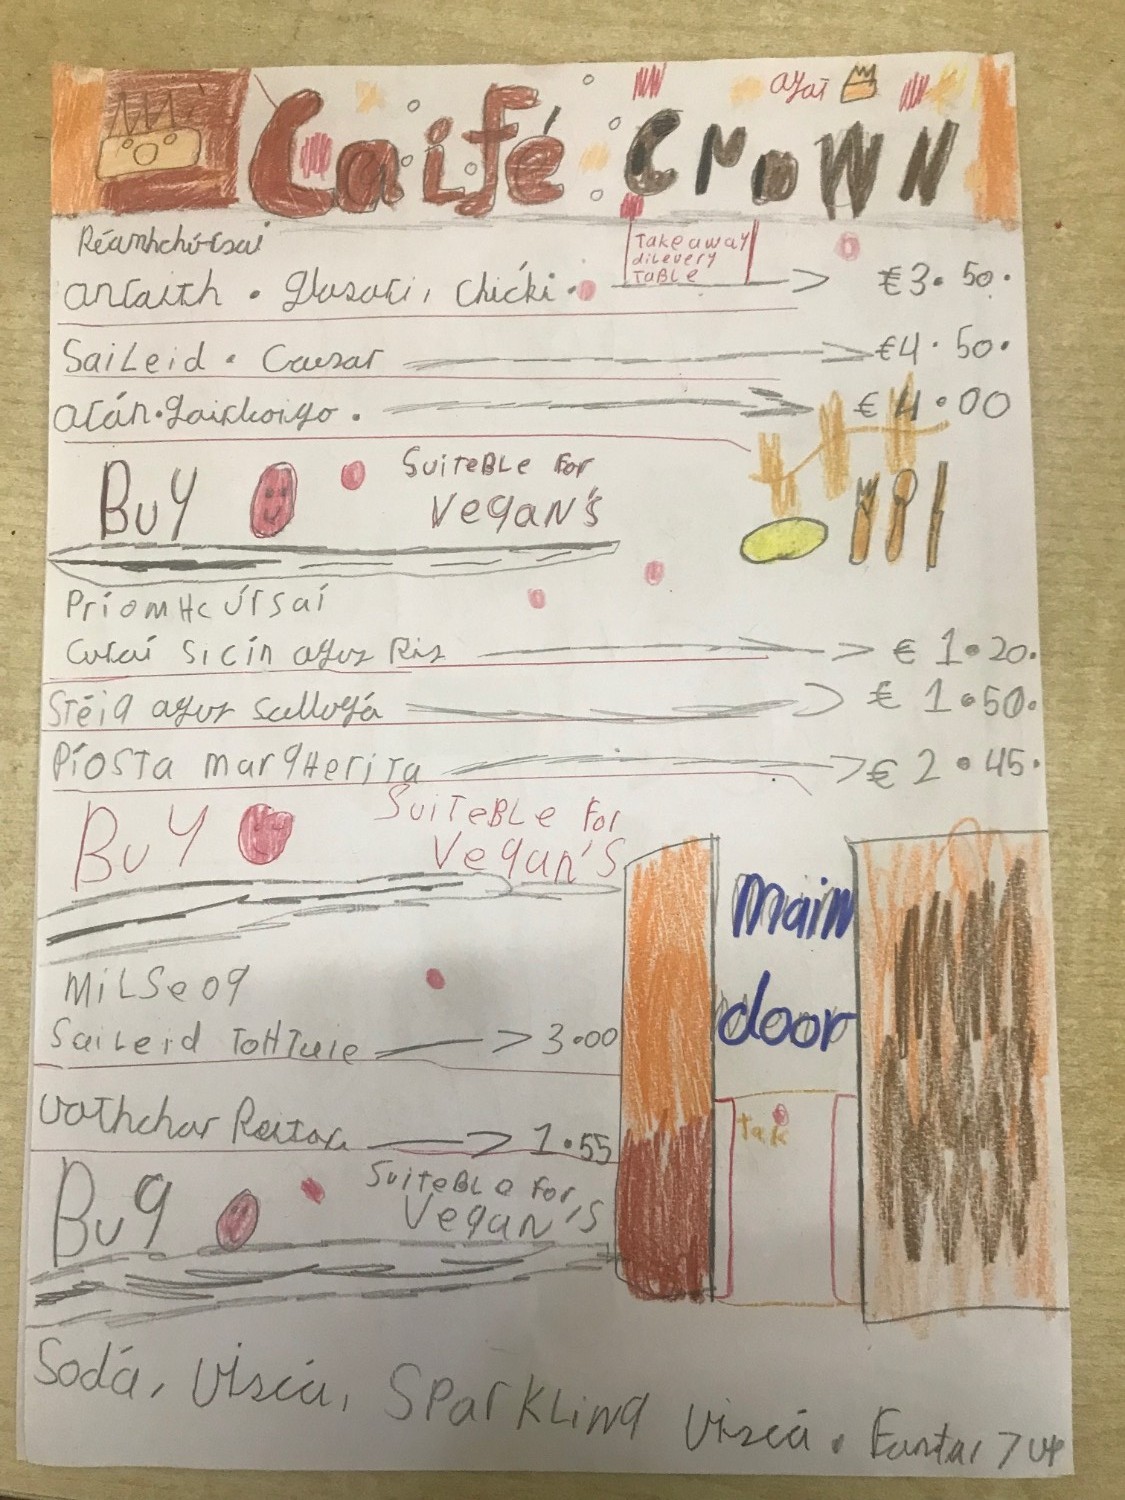 agaí
Caifé Crown
Réamhchúrsaí
Takeaway
dilevery
TaBLe
anraith. glasraí, Chicki. €3.50.
SaiLeid. Caesar €4.50.
arán. gairleoige. €4.00
BuY SuiTeBLe For
Vegan's
PríomHcÚrsaí
Curaí Sicín agus Rís € 1.20.
Stéig agus Sallugá € 1.50.
Píosta MargHeriTa € 2.45.
BuY SuiTeBLe For
Vegan's
Main
door
MiLSeog
SaiLeid ToHTuie 3.00
Uathchar Reitoa 1.55
tak
Buy SuiTeBLe For
Vegan's
Sodá, Uiscá, SParkLing Uiscá. Fanta, 7 up